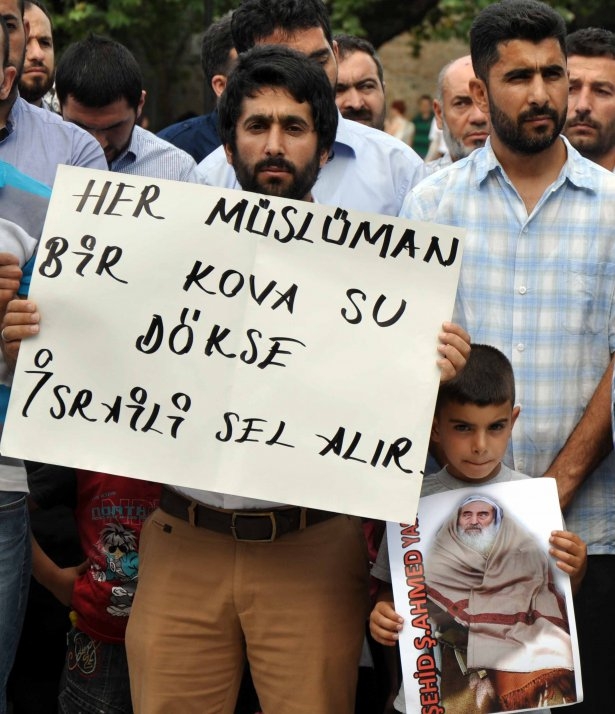 HER MÜSLÜMAN
BİR KOVA SU
DÖKSE
İSRAİLİ SEL ALIR.
ŞEHİD Ş.AHMED YAS